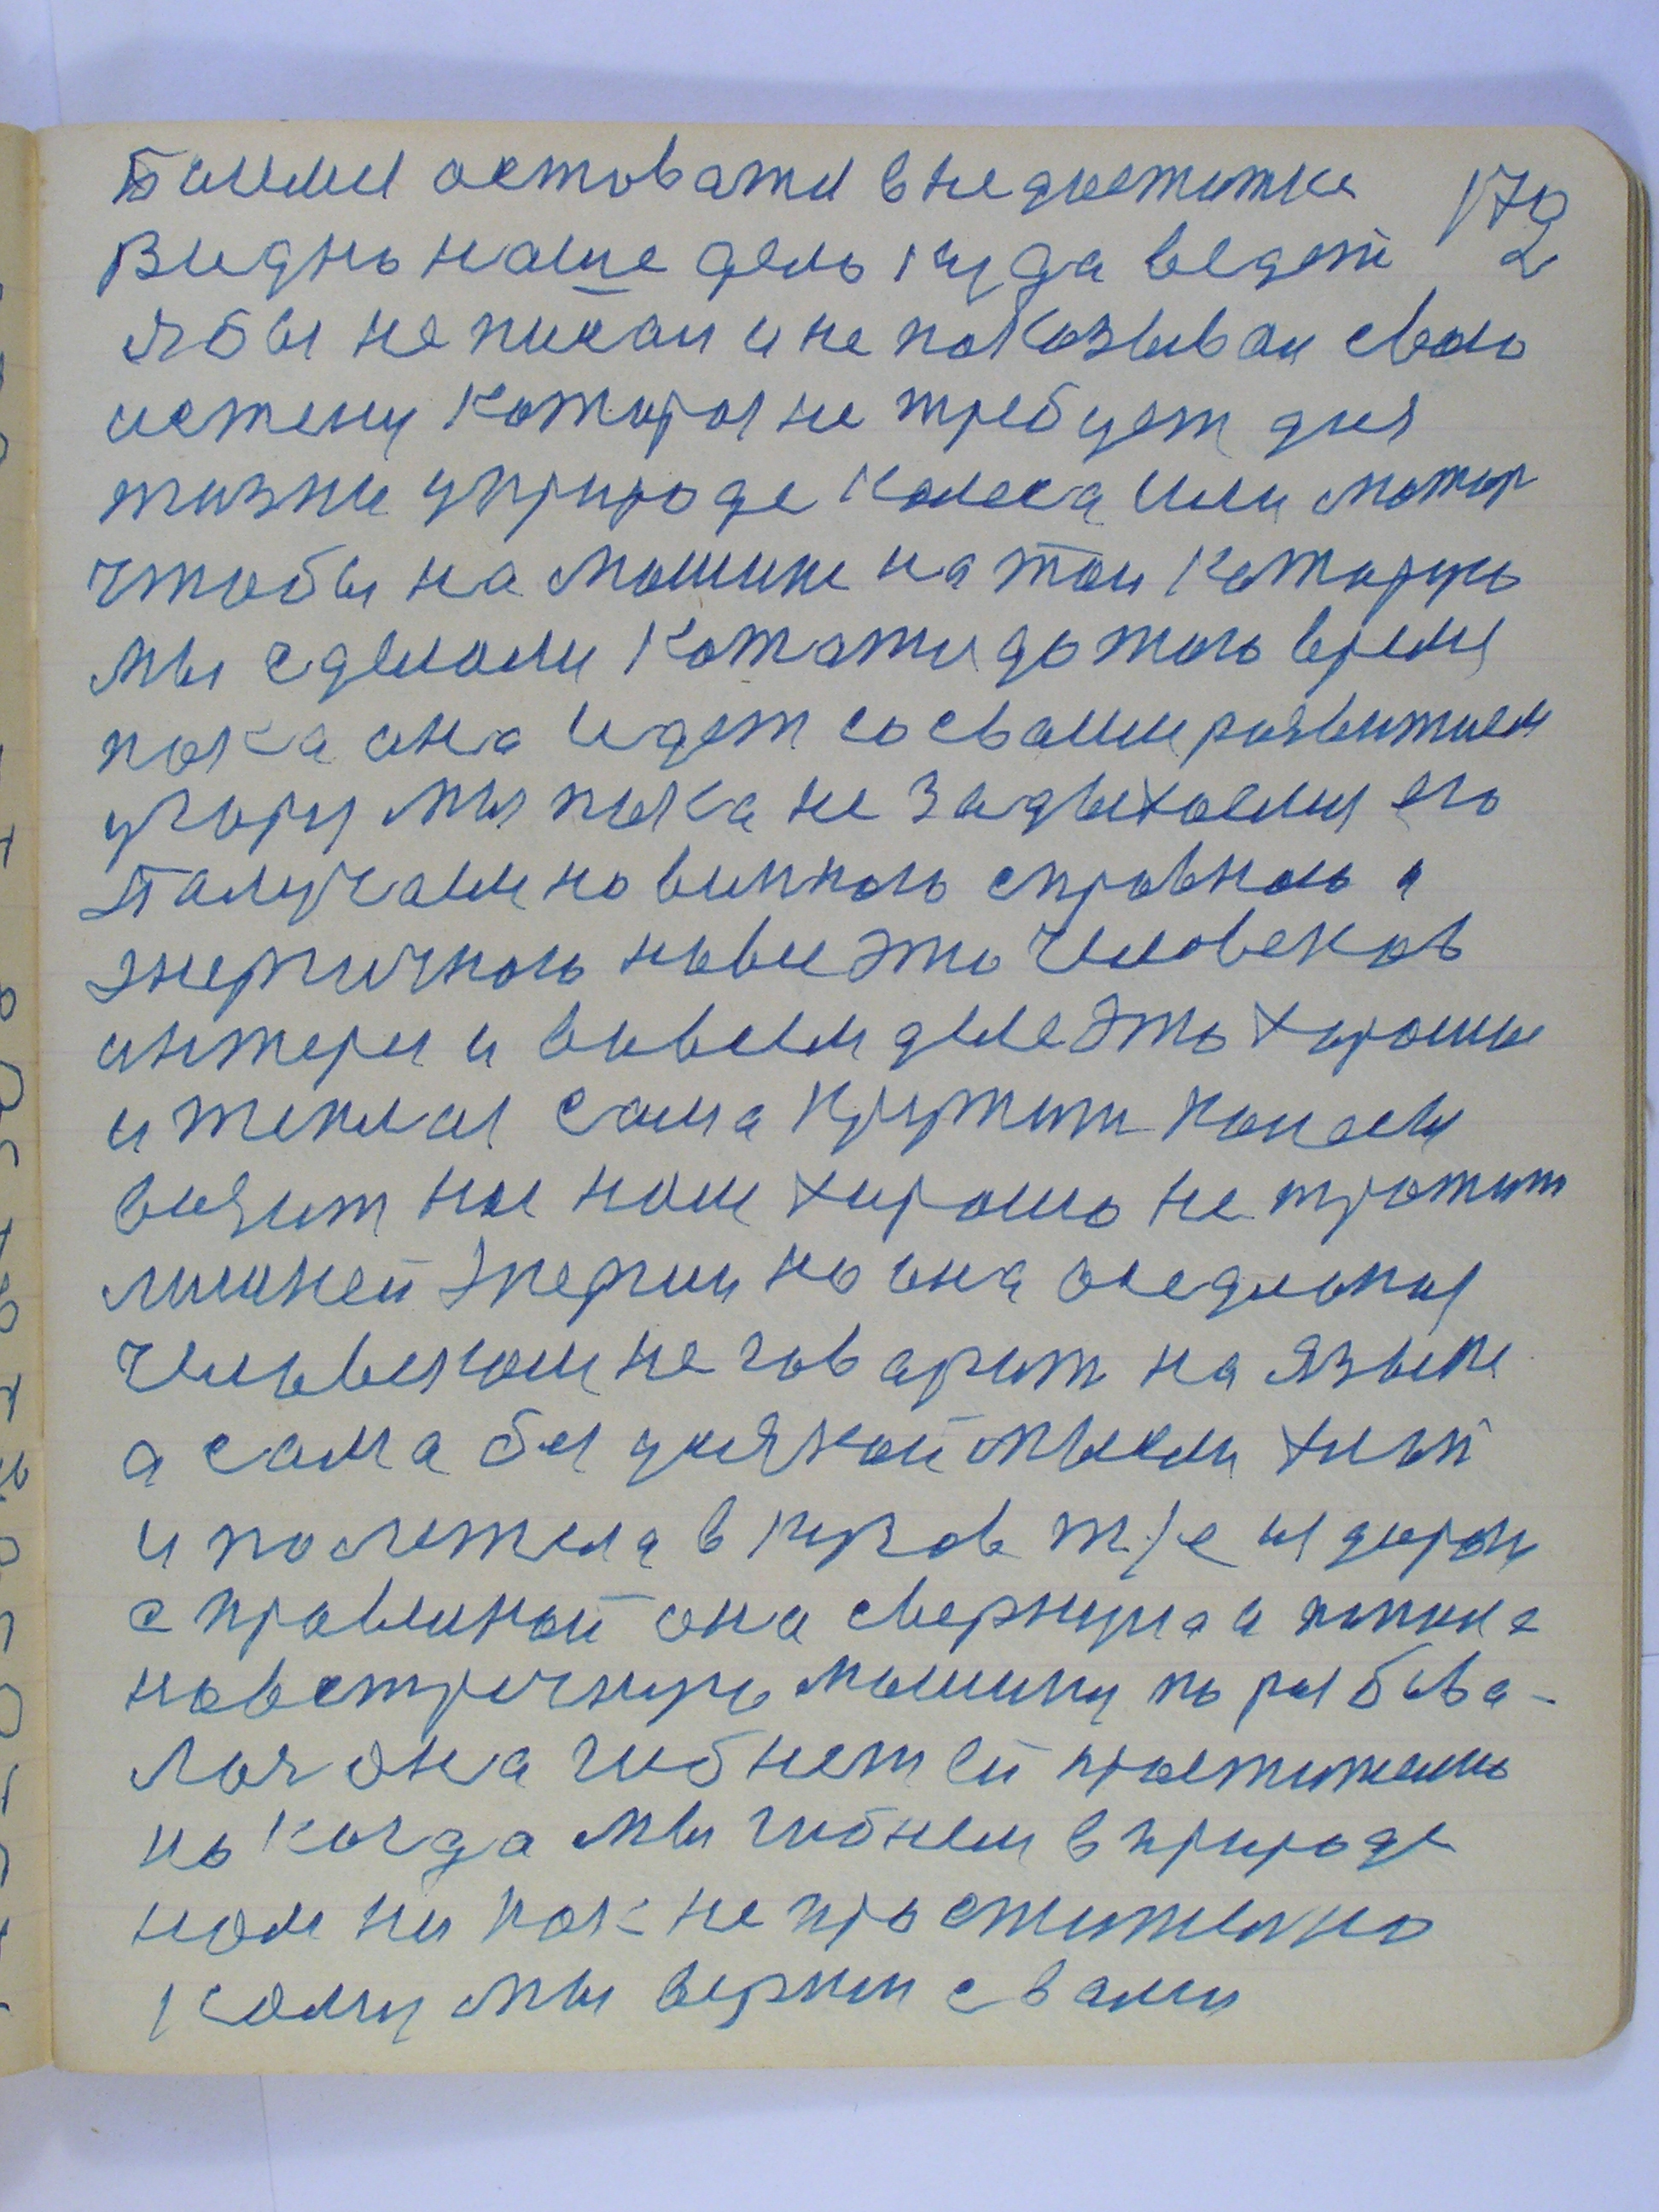 Таими оставати в недостатке 172
Видно наше дело куда ведет
я бы не писал и не показывал свою
истену которая не требует для
жизни у природе колеса или мотор
чтобы на машине на той которую
мы сделали катати до того время
пока она идет со своим развитием
угору мы пока не задыхаемся его
Получаем новинного справного
энергичного новые это человеков
интерес и вовсем деле это хорошие
и теплая сама кружит колесы
визит ны ном хорошо не тратит
лишней энергии но она сделоная
человеком не говарит на языке
а сама без уиякой мысли хлып
и полетела в кузов т/е и дорои
справленой она свернула и попала
на встречную машину поразбива-
лоя она гибнет ей простително
но когда мы гибнем в природе
нам ни как не простително
кому мы верим с вами